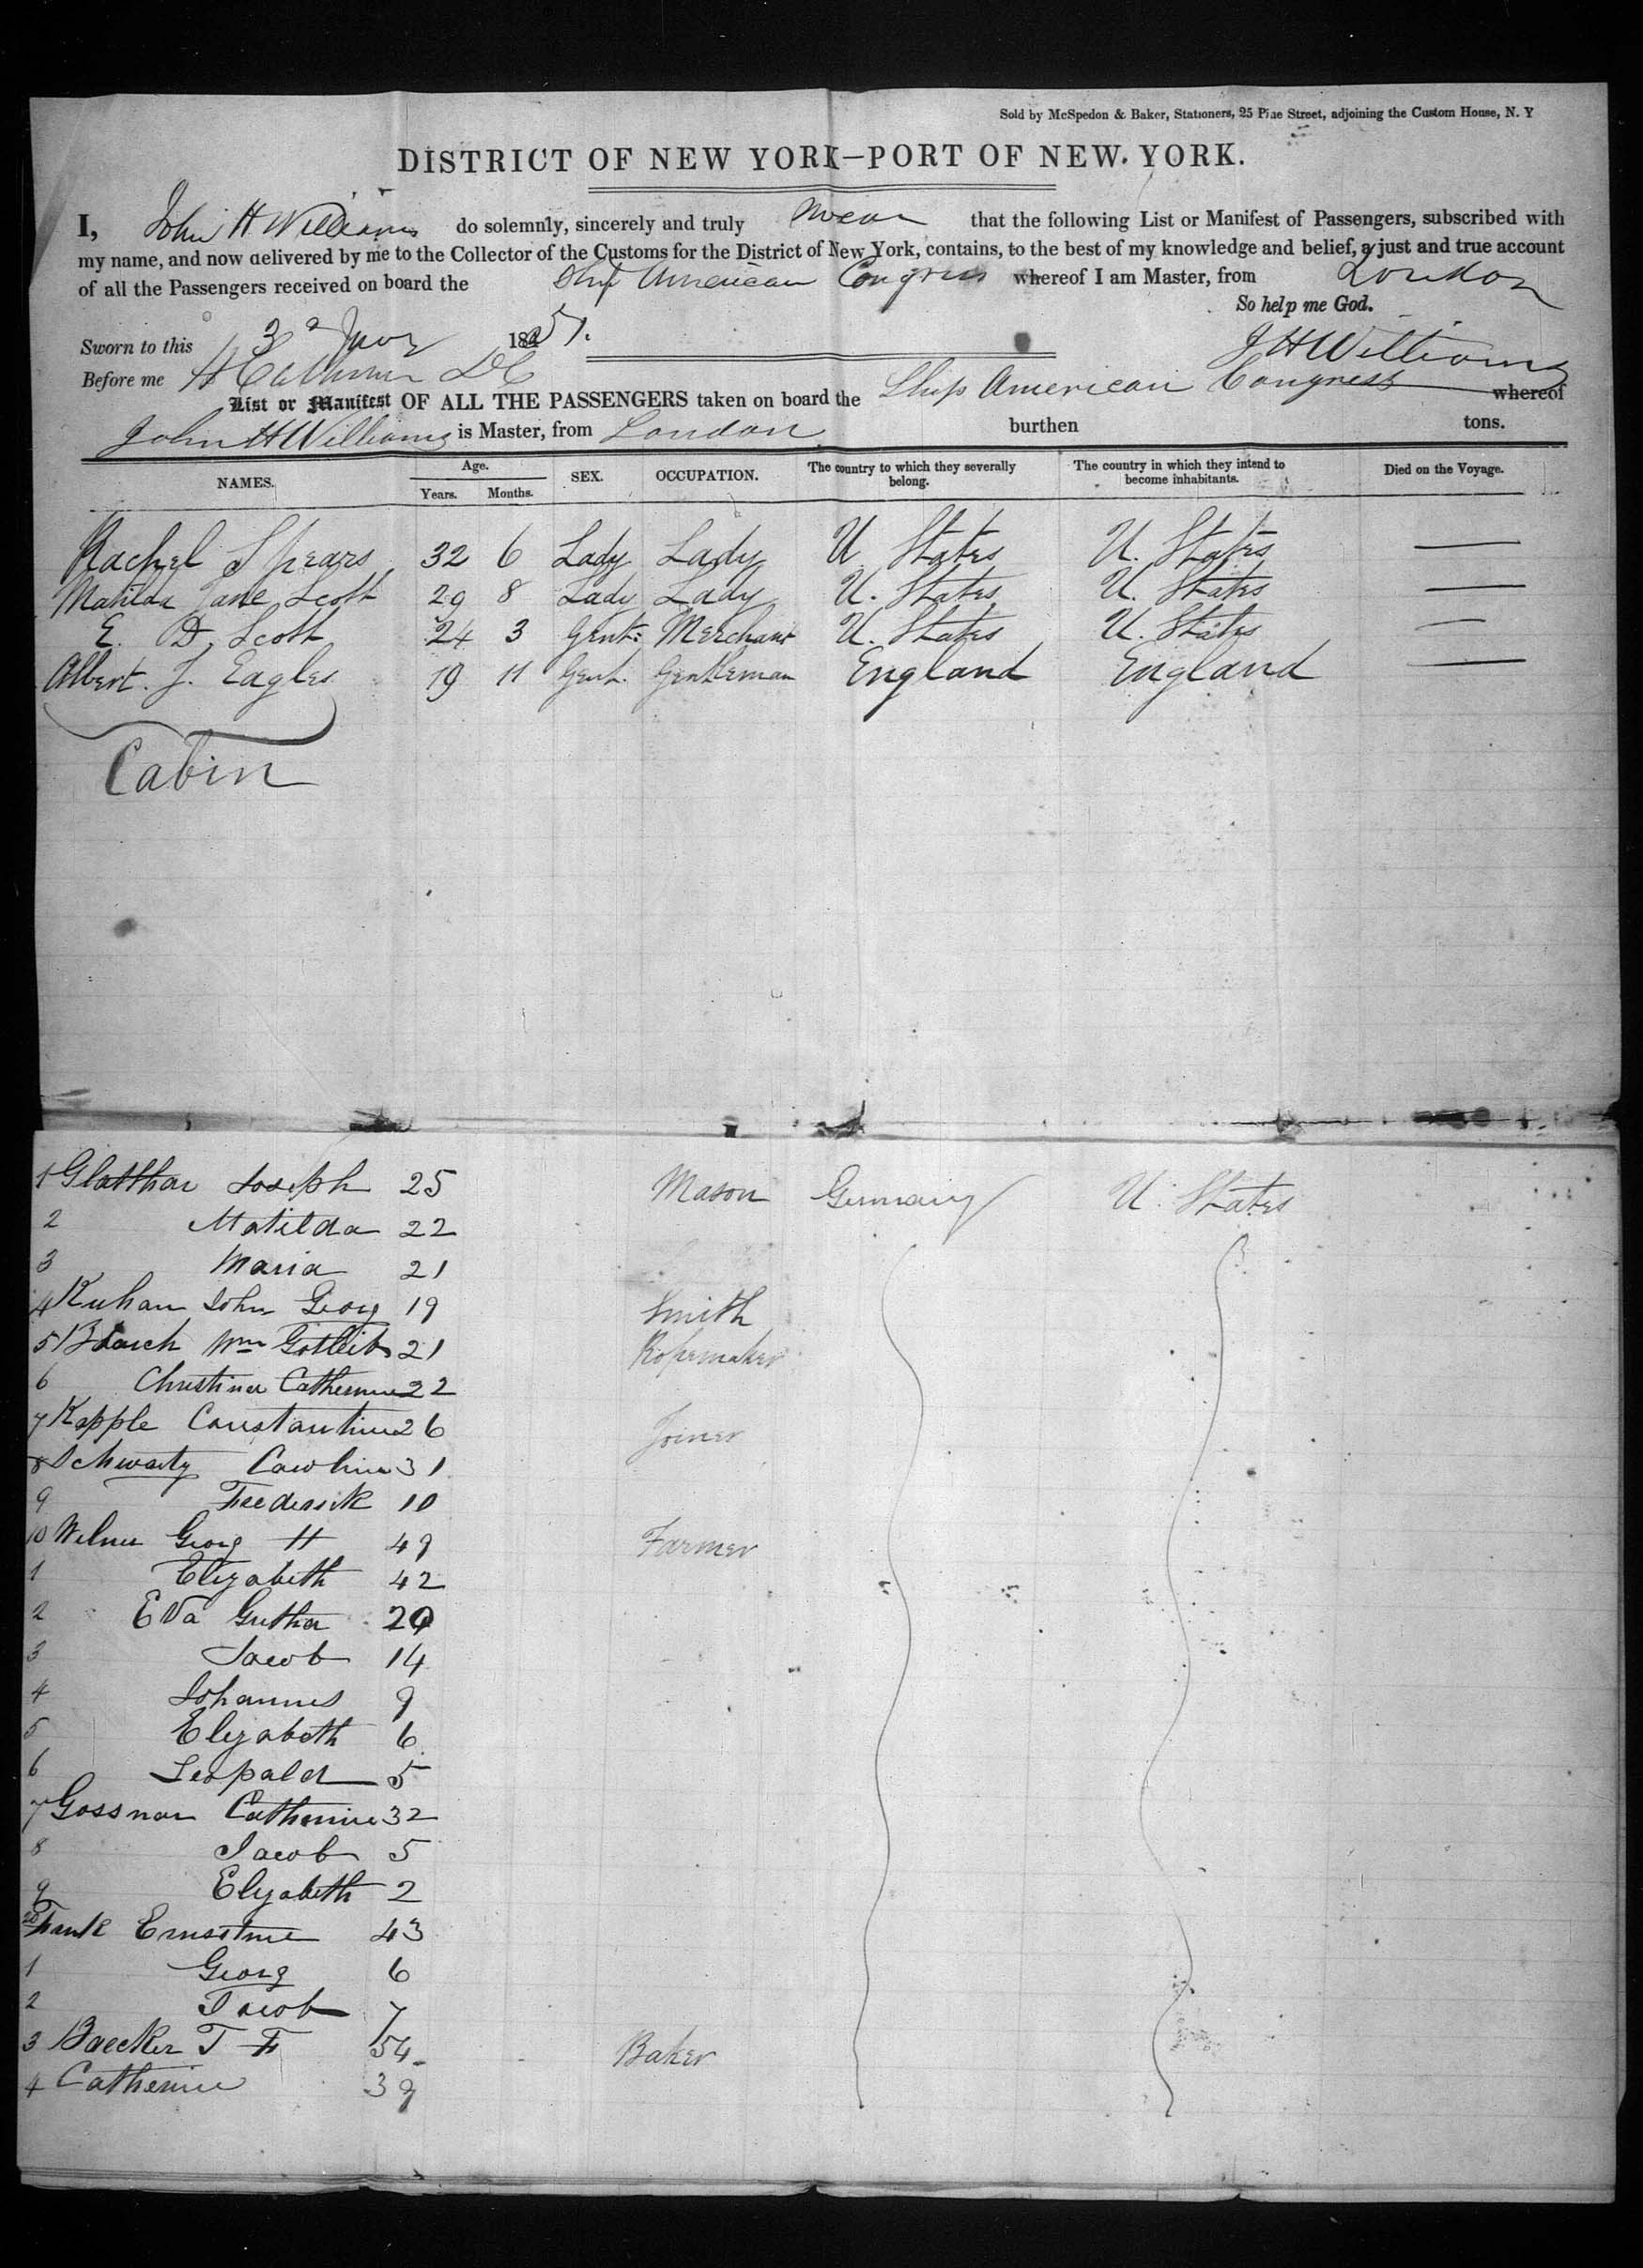 Sold by McSpedon & Baker, Stationers, 25 Pine Street, adjoining the Custom House, N. Y
DISTRICT OF NEW YORK—PORT OF NEW YORK.
I, John H Williams do solemnly, sincerely and truly swear that the following List or Manifest of Passengers, subscribed with
my name, and now delivered by me to the Collector of the Customs for the District of New York, contains, to the best of my knowledge and belief, a just and true account
of all the Passengers received on board the Ship American Congress whereof I am Master, from London
So help me God.
Sworn to this 3 1851.
J H Williams
Before me
List or Manifest OF ALL THE PASSENGERS taken on board the Ship American Congress whereof
John H Williams is Master, from London burthen tons.
NAMES. Age. SEX. OCCUPATION. The country to which they severally belong. The country in which they intend to become inhabitants. Died on the Voyage.
Years. Months.
Rachel Spears 32 6 Lady Lady U States U. States —
Matilda Jane Scott 29 8 Lady Lady U. States U. States —
E. D. Scott 24 3 Gent: Merchant U. States U. States —
Albert. J. Eagles 19 11 Gent. Gentleman England England —
Cabin
1 Glatthar Joseph 25 Mason Germany U. States
2 Matilda 22
3 Maria 21
4 Kuhan John Georg 19 Smith
5 Wm Gottlieb 21 Ropemaker
6 Christina Catherine 22
7 Kapple Constantine 26 Joiner
8 Schwartz Caroline 31
9 Frederick 10
10 Wilmer Georg H 49 Farmer
1 Elizabeth 42
2 Eva Gutha
3 Jacob 14
4 Johannes 9
5 Elizabeth 6
6 Leopald 5
7 Gossnar Catherine 32
8 Jacob 5
9 Elizabeth 2
20 Frank Ernestine 43
1 Georg 6
2 Jacob 7
3 Baecker J F 54 Baker
4 Catherine 39